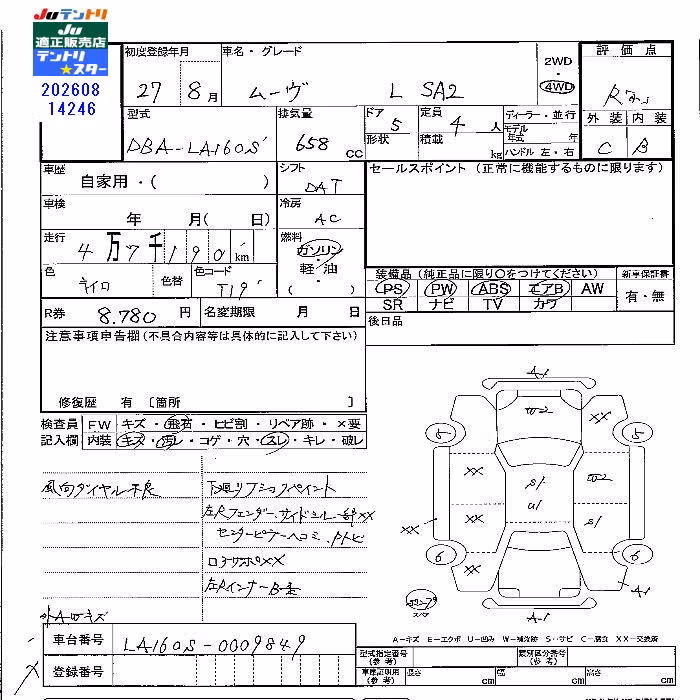 Juテントリ
Ju
適正販売店
テントリ
★スター
202608
14246
初度登録年月
27 8月
車名・グレード
ムーヴ L SA2
2WD
4WD
評価点
R
外装 内装
C B
型式
DBA-LA160S
排気量
658 cc
ドア
5
形状
定員
4 人
積載 kg
ディーラー・並行
モデル
年式 年
ハンドル 左・右
車歴
自家用・( )
シフト
DAT
セールスポイント (正常に機能するものに限ります)
車検
年 月( 日)
冷房
AC
走行
4万7千190 km
燃料
ガソリン
軽・油
( )
色
キイロ
色替
色コード
T19
装備品 (純正品に限り○をつけてください)
PS PW ABS エアB AW
SR ナビ TV カワ
新車保証書
有・無
R券 8.780 円
名変期限 月 日
後日品
注意事項申告欄 (不具合内容等は具体的に記入して下さい)
修復歴 有 〔箇所 〕
検査員
記入欄
FW キズ・飛石・ヒビ割・リペア跡・×要
内装 キズ・汚レ・コゲ・穴・スレ・キレ・破レ
風向ダイヤル不良
下廻リフショックペイント
左Rフェンダー、サイドシル一部XX
センターピラーヘコミ、Pトビ
ロアサポXX
左Rインナー
外A
キズ
車台番号 LA160S-0009849
登録番号
A-1
W-2
XX
5 5
XX
S1
W-2
XX
XX
U1
S1
6 6
XX
A-1
A-1
スペア
A-キズ E-エクボ U-凹み W-補修跡 S-サビ C-腐食 XX-交換済
型式指定番号
(参考)
類別区分番号
(参考)
車庫証明用
(参考)
長さ cm
幅 cm
高さ cm